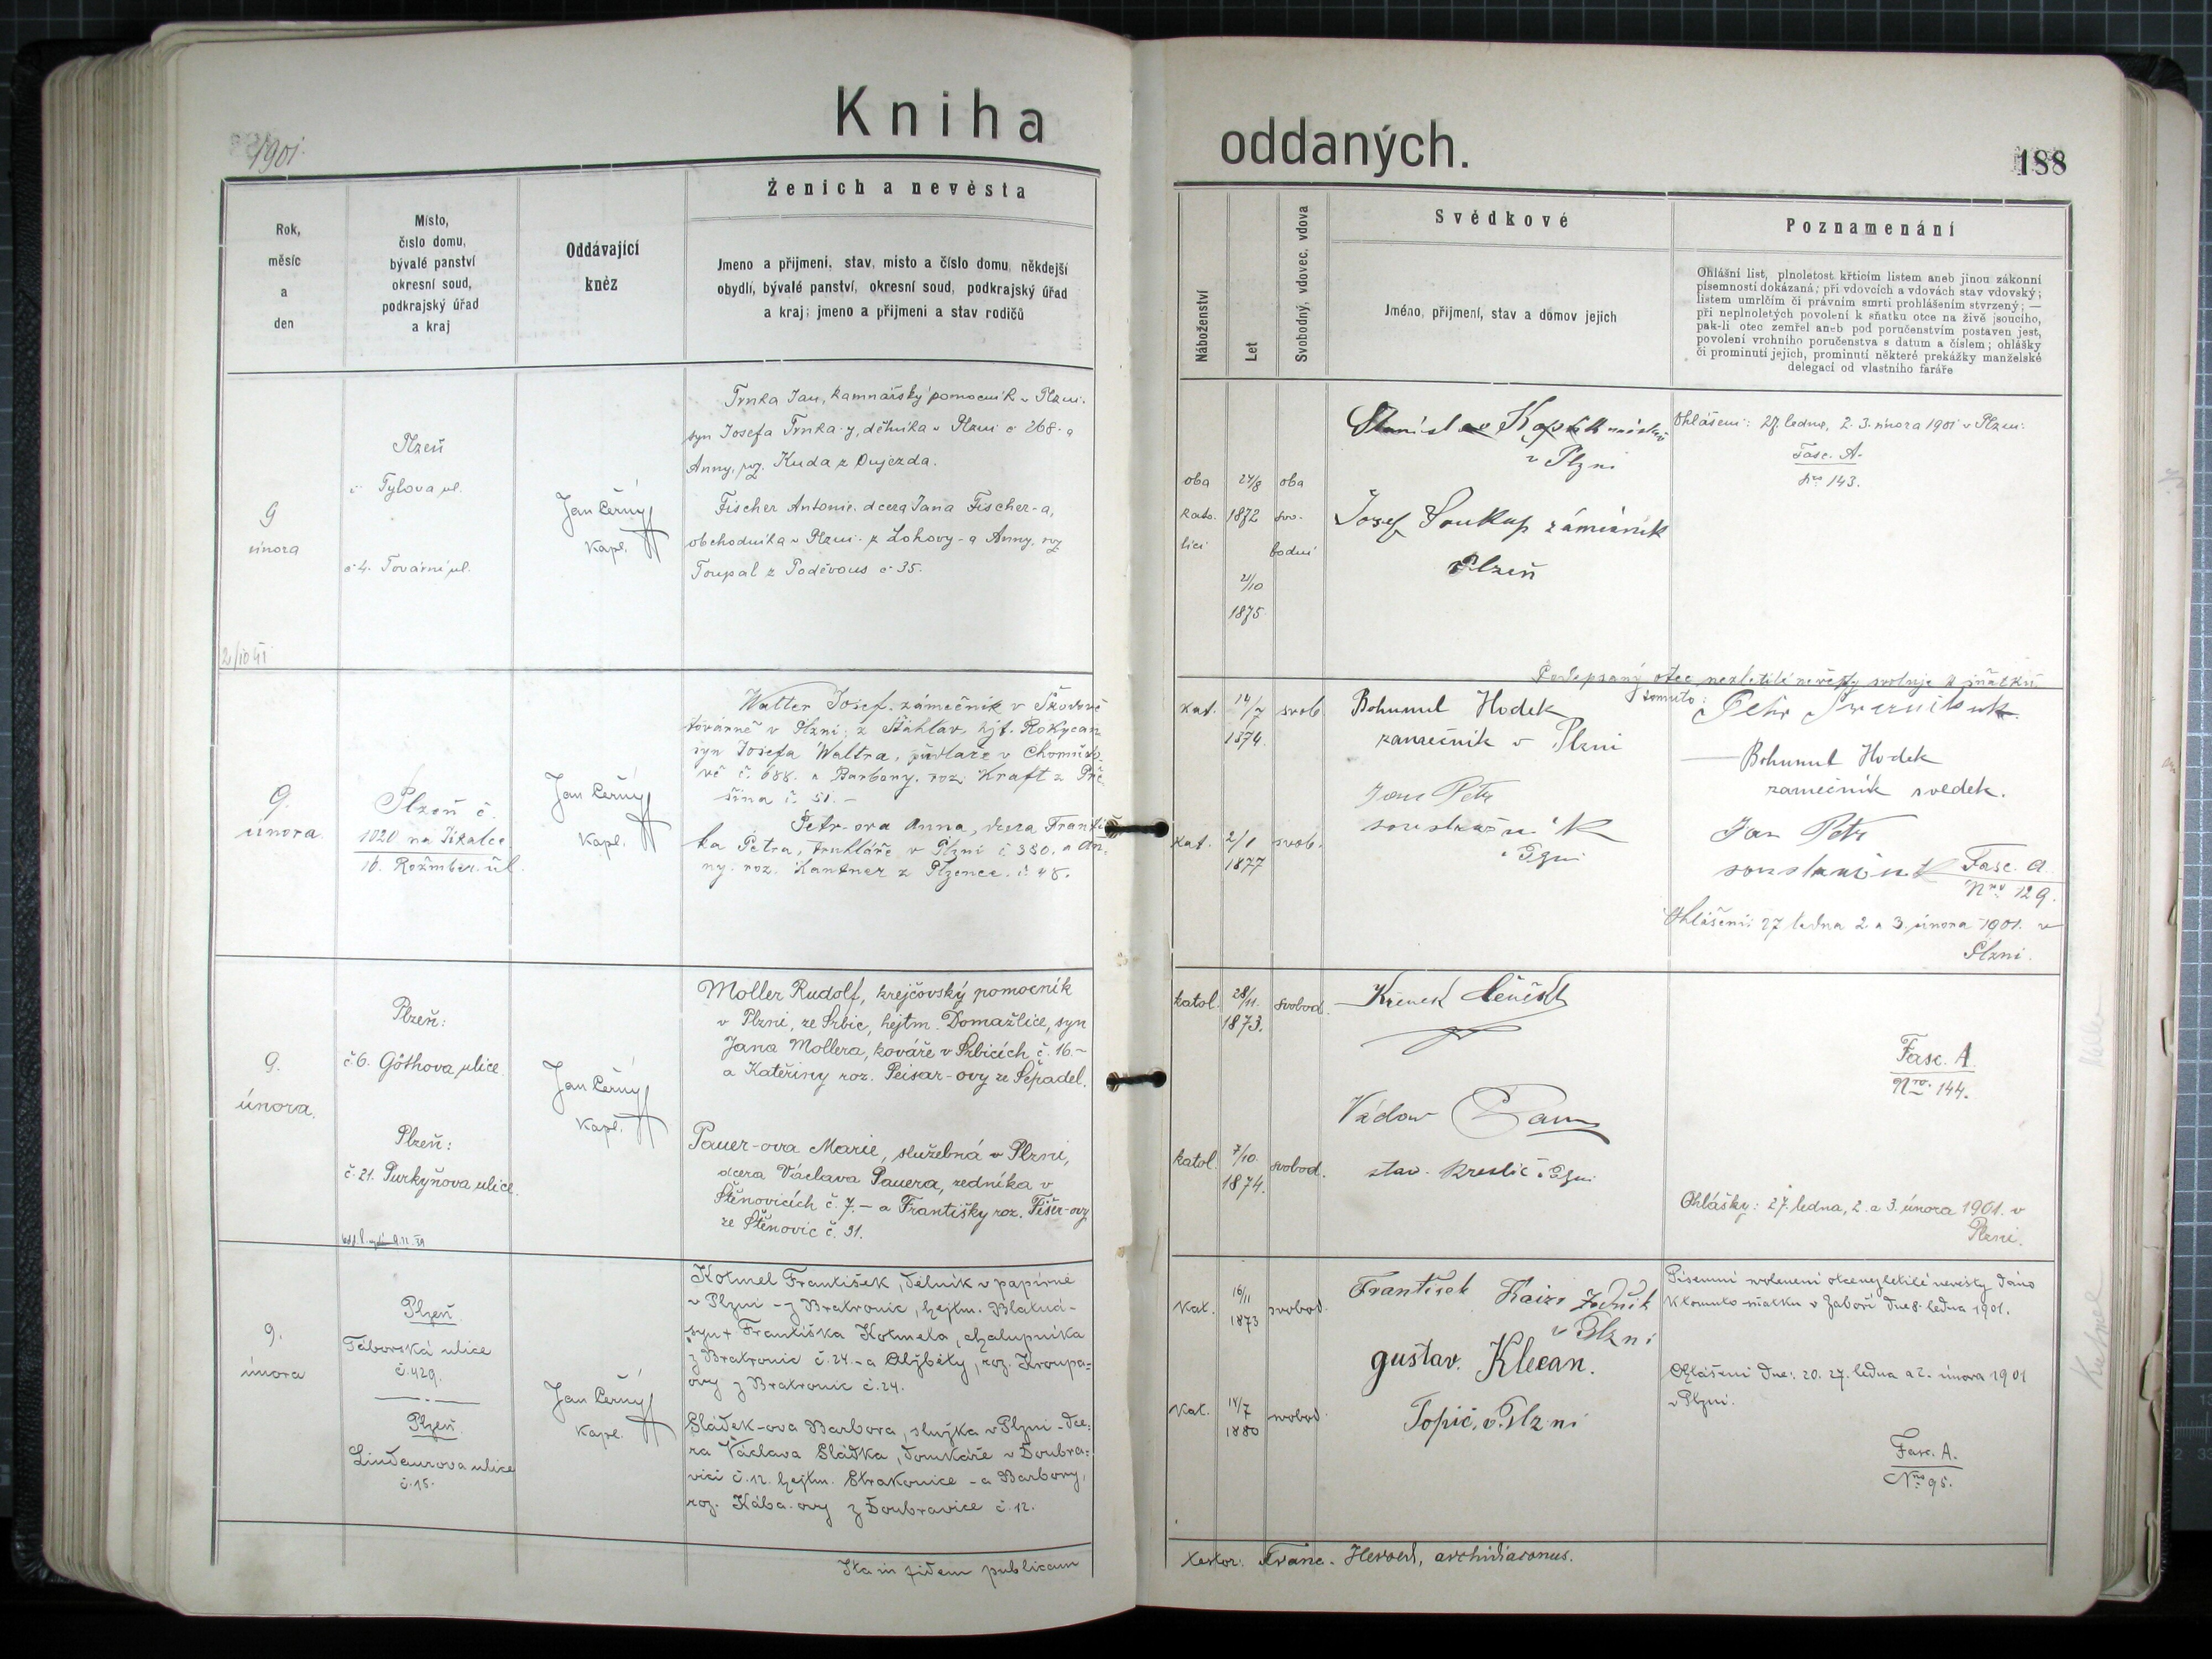 Kniha
oddaných.
1901
188
Rok,
měsíc
a
den
Místo,
číslo domu,
bývalé panství
okresní soud,
podkrajský úřad
a kraj
Oddávající
kněz
Ženich a nevěsta
Jmeno a přijmení, stav, místo a číslo domu, někdejší
obydlí, bývalé panství, okresní soud, podkrajský úřad
a kraj; jmeno a přijmeni a stav rodičů
Náboženství
Let
Svobodný, vdovec, vdova
Svědkové
Jméno, přijmení, stav a domov jejich
Poznamenání
Ohlášní list, plnoletost křticím listem aneb jinou zákonní
písemností dokázaná; při vdovcích a vdovách stav vdovský;
listem umrlčím či právním smrti prohlášením stvrzený; —
při neplnoletých povolení k sňatku otce na živě jsoucího,
pak-li otec zemřel aneb pod poručenstvím postaven jest,
povolení vrchního poručenstva s datum a číslem; ohlášky
či prominutí jejich, prominutí některé prekážky manželské
delegací od vlastního faráře
9
února
2/10 41
Plzeň
č Tylova ul.
č 4. Tovární ul.
Jan Černý
Kapl.
Trnka Jan, kamnářský pomocník v Plzni.
syn Josefa Trnka-y, dělníka v Plzni č 268. a
Anny, roz. Kuda z Oujezda.
Fischer Antonie. dcera Jana Fischer-a,
obchodníka v Plzni z Lohovy - a Anny, roz
Toupal z Poděvous č 35.
oba
kato.
líci
24/8
1872
21/10
1875
oba
svo-
bodni
Stanislav
v Plzni
Josef Soukup zámečník
Plzeň
Ohlášení: 27 ledna, 2. 3. února 1901 v Plzni.
Fasc. A.
Nro 143.
9.
února.
Plzeň č.
1020 na Jíkalce
16. Rožmber. ul.
Jan Černý
Kapl.
Walter Josef. zámečník v Škodově
továrně v Plzni; z Šťáhlav, hjt. Rokycan
syn Josefa Waltra, v
č. 688. a Barbory. roz. Kraft z
č. 51. -
Petr-ova Anna, dcera Františ
ka Petra, truhláře v Plzni č. 380. a An-
ny. roz. Kantner z Plzence. č. 48.
Kat.
14/7
1874.
svob.
Kat.
2/1
1877
svob.
Bohumil Hodek
zamečnik v Plzni
Jan Petr
soustružník
v Plzni
Podepsaný otec nezletilé nevěsty svoluje k sňatku
tomuto:
Bohumil Hodek
zamečnik svědek.
Jan Petr
soustružník
Fasc. A.
Nro 129.
Ohlášení: 27 ledna 2 a 3. února 1901. v
Plzni.
9.
února.
Plzeň:
č 6. Göthova ulice.
Plzeň:
č. 21. Purkyňova ulice.
Jan Černý
Kapl.
Moller Rudolf, krejčovský pomocník
v Plzni, ze Srbic, hejtm. Domažlice, syn
Jana Mollera, kováře v Srbicích č. 16. -
a Kateřiny roz. Peisar-ovy ze Sepadel.
Pauer-ova Marie, služebná v Plzni,
dcera Václava Pauera, zedníka v
Štěnovicích č. 7. - a Františky roz. Fišer-ovy
ze Štěnovic č. 31.
katol.
28/11.
1873.
svobod.
katol.
7/10.
1874.
svobod.
Křenek
Václav
stav. kreslič v Plzni
Fasc. A.
Nro. 144.
Ohlášky: 27. ledna, 2. a 3. února 1901. v
Plzni.
9.
února
Plzeň
Táborská ulice
č. 429.
Plzeň
Lindaurova ulice
č. 15.
Jan Černý
Kapl.
Kotmel František, dělník v papírně
v Plzni - z Bratronic, hejtm. Blatná -
syn + Františka Kotmela, chalupníka
z Bratronic č. 24. - a Alžběty, roz. Kroupa=
ovy z Bratronic č. 24.
Sládek-ova Barbora, služka v Plzni - dce=
ra Václava Sládka, domkáře v Doubra=
vici č. 12. hejtm. Strakonice - a Barbory,
roz. Kába-ovy z Doubravice č. 12.
Kat.
16/11
1873
svobod.
Kat.
14/7
1880
svobod.
Frantisek Kaizr Zedník
v Plzni
gustav. Klecan.
Topič, v. Plzni
Písemní svolenení otce nezletilé nevěsty dáno
k tomuto sňatku v Záboří dne 8. ledna 1901.
Ohlášení dne: 20. 27. ledna a 2. února 1901
v Plzni.
Fasc. A.
Nro 95.
Ita in fidem publicam
Franc. Herold, archidiaconus.